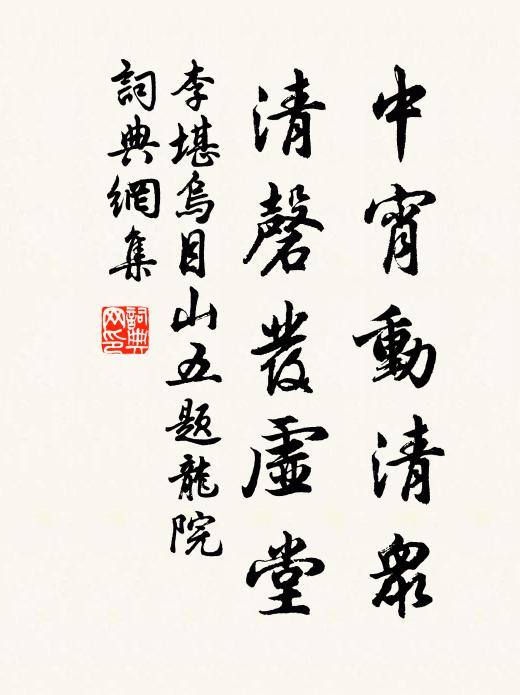 中宵動清眾
清磬發虛堂
李堪烏目山五題龍院
詞典網集
詞典网印